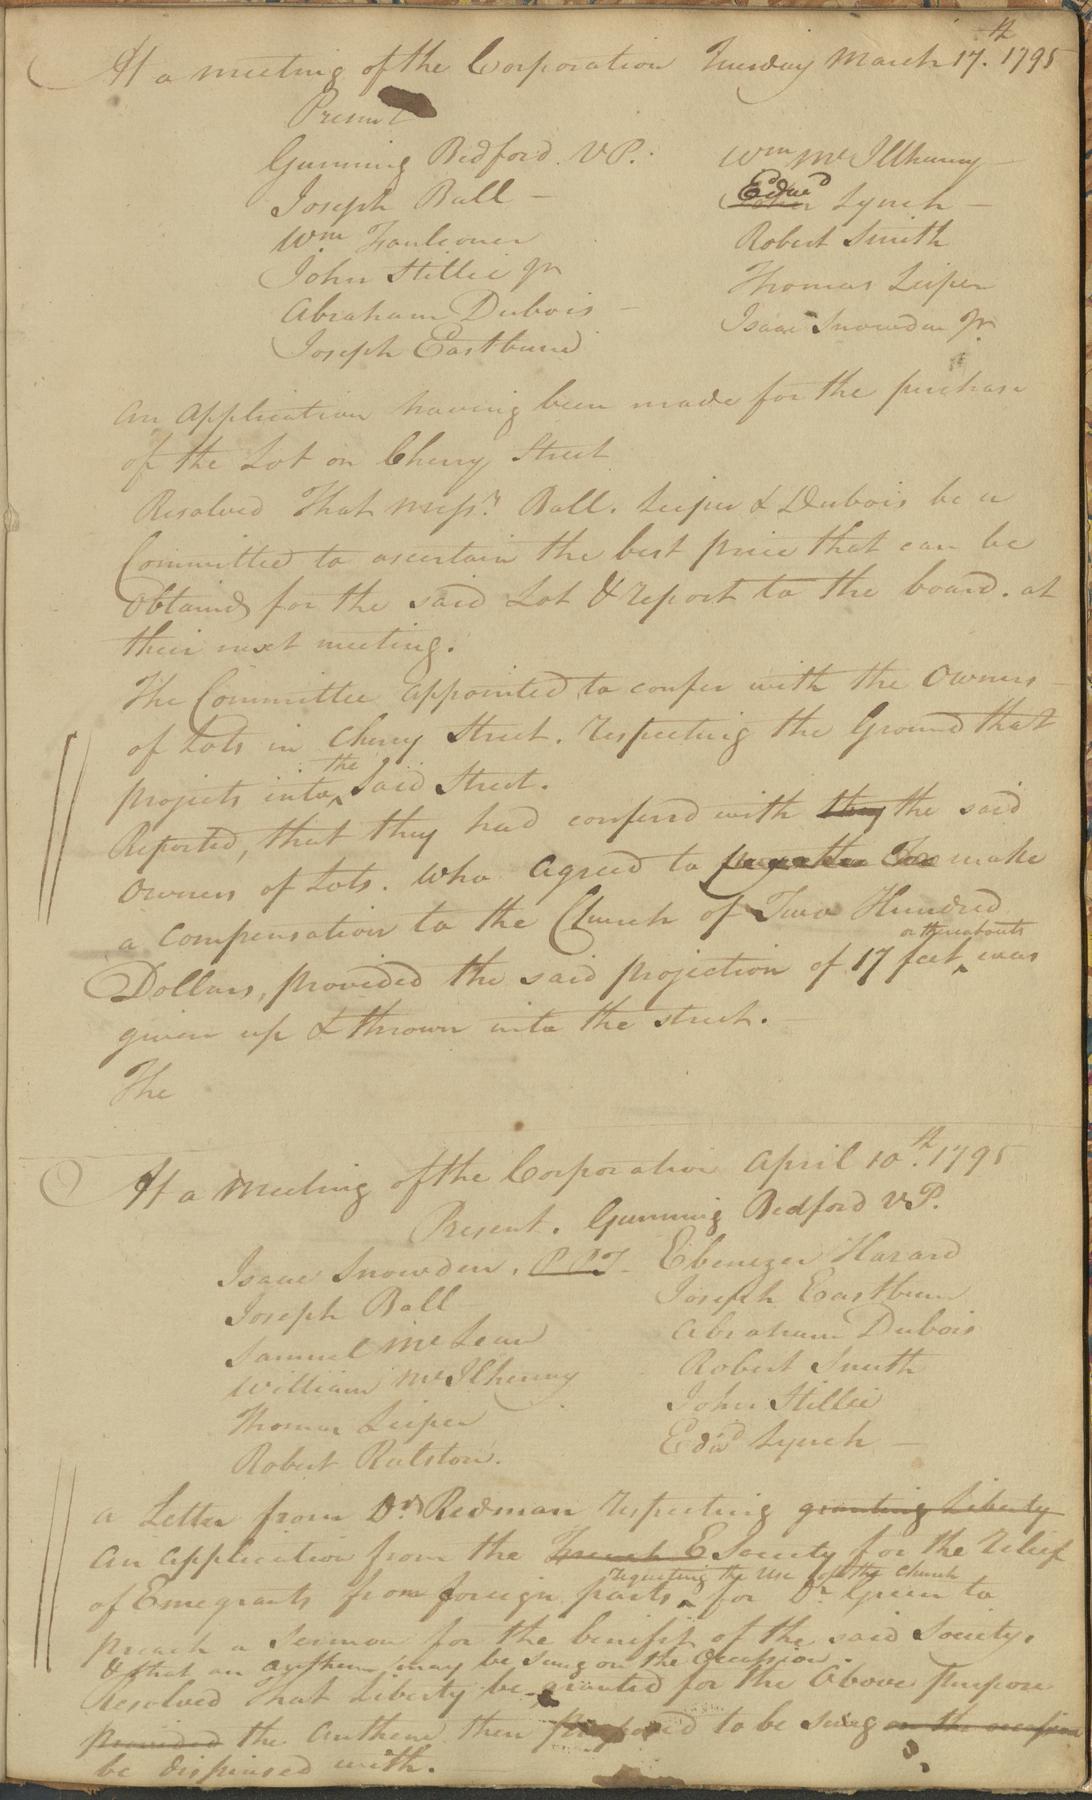 At a meeting of the Corporation Tuesday March 17.th 1795
Present
Gunning Bedford. VP.
Joseph Ball –
Wm Faulconer
John Stillie Jr
Abraham Dubois –
Joseph Eastburn
Wm McIlhenny –
Edwd Lynch –
Robert Smith
Thomas Leiper
Isaac Snowden Jr.
An Application having been made for the purchase
of the Lot on Cherry Street
Resolved That Messrs. Ball. Leiper & Dubois be a
Committee to ascertain the best price that can be
obtained for the said Lot & report to the board. at
their next meeting.
The Committee appointed to confer with the Owners
of Lots in Cherry Street. respecting the Ground that
projects into the Said Street.
Reported, that they had conferrd with they the said
owners of Lots. who agreed to make
a compensation to the Church of Two Hundred
Dollars, provided the said projection of 17 feet or thereabouts was
given up & thrown into the street.
The
At a Meeting of the Corporation April 10.th 1795
Present. Gunning Bedford VP.
Isaac Snowden. PPT.
Joseph Ball
Samuel McLean
William McIlhenny
Thomas Leiper
Robert Ralston.
Ebenezer Hazard
Joseph Eastburn
Abraham Dubois
Robert Smith
John Stillie
Edwd Lynch –
a Letter from Dr. Redman respecting granting Liberty
an application from the French E Society for the relief
of Emegrants from foreign parts requesting the use of the Church for Dr Green to
preach a Sermon for the benifit of the said Society.
& that an anthem may be sung on the occassion.
Resolved That Liberty be granted for the Above purpose
provided the anthem then proposed to be sung on the occasion
be dispensed with.